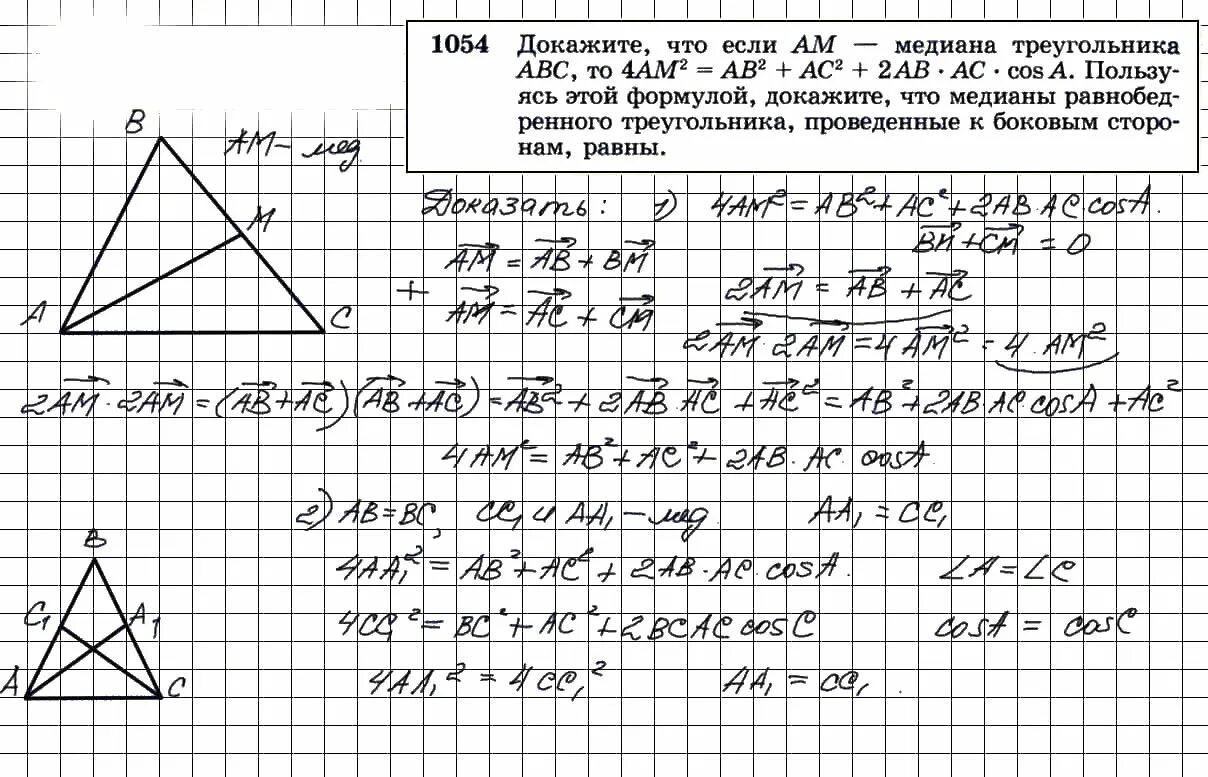 1054 Докажите, что если AM — медиана треугольника
ABC, то 4AM² = AB² + AC² + 2AB · AC · cos A. Пользу-
ясь этой формулой, докажите, что медианы равнобед-
ренного треугольника, проведенные к боковым сторо-
нам, равны.
B
AM – мед.
M
A
C
Доказать: 1) 4AM² = AB² + AC² + 2AB·AC·cosA.
AM⃗ = AB⃗ + BM⃗
BM⃗ + CM⃗ = 0
+
AM⃗ = AC⃗ + CM⃗
2AM⃗ = AB⃗ + AC⃗
2AM⃗ · 2AM⃗ = 4AM⃗² = 4·AM²
2AM⃗ · 2AM⃗ = (AB⃗ + AC⃗)(AB⃗ + AC⃗) = AB⃗² + 2AB⃗·AC⃗ + AC⃗² = AB² + 2AB·AC cosA + AC²
4AM² = AB² + AC² + 2AB·AC·cosA
2) AB = BC, CC₁ и AA₁ – мед. AA₁ = CC₁
B
C₁
A₁
A
C
4AA₁² = AB² + AC² + 2AB·AC·cosA. ∠A = ∠C
4CC₁² = BC² + AC² + 2BC AC cosC cosA = cosC
4AA₁² = 4CC₁² AA₁ = CC₁.